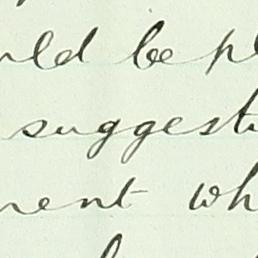 uld be pl
suggesti
ment wh